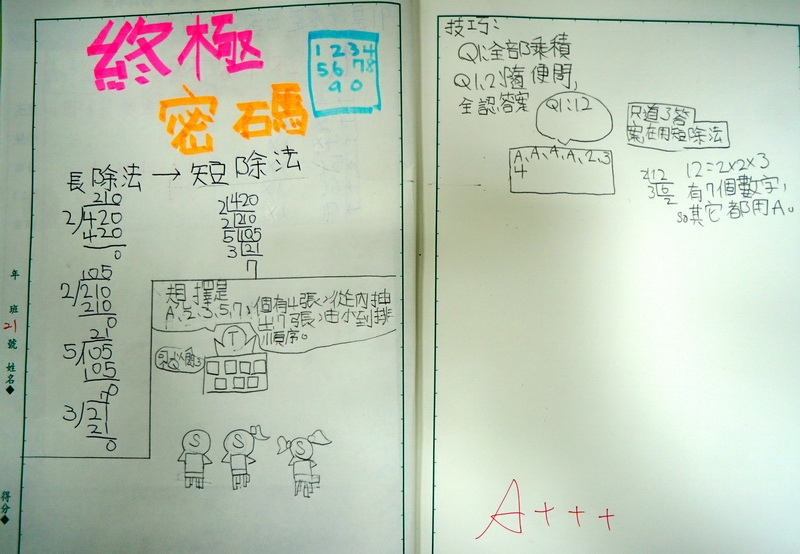 終極
密碼
1 2 3 4
5 6 7 8
9 0
長除法→短除法
210
2/420
420
0
105
2/210
210
0
21
5/105
105
0
7
3/21
21
0
2 420
2 210
5 105
3 21
7
規擇是
A、2、3、5、7,個有4張,從內抽
出7張,由小到排
順序。
T
S
S
S
年
班
21
號
姓名◆
得分◆
技巧:
Q1:全部乘積
Q1,2:隨便問,
全認答案
Q1:12
A,A,A,A,2,3
4
只道3答
案在用短除法
2 12
3 6
2
12=2×2×3
有7個數字,
so其它都用A。
A+++